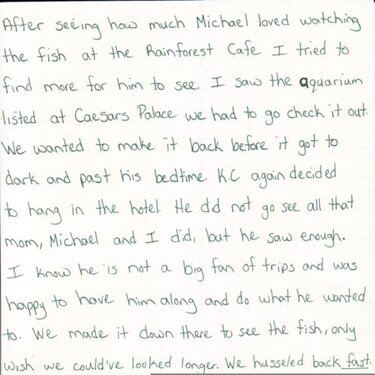 After seeing how much Michael loved watching
the fish at the Rainforest Cafe I tried to
find more for him to see. I saw the aquarium
listed at Caesars Palace we had to go check it out.
We wanted to make it back before it got to
dark and past his bedtime. KC again decided
to hang in the hotel. He did not go see all that
mom, Michael and I did, but he saw enough.
I know he is not a big fan of trips and was
happy to have him along and do what he wanted
to. We made it down there to see the fish, only
wish we could've looked longer. We husseled back fast.